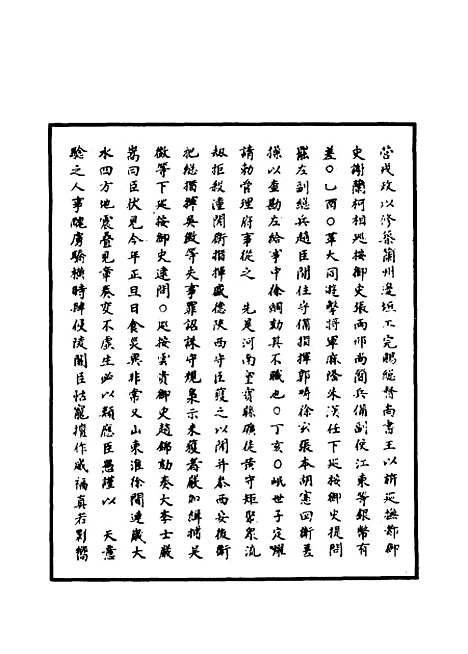 營戌攻以修築蘭州邊垣工完賜總督尚書王以旂巡撫都御
史謝蘭柯相巡按御史張雨邢尚簡兵備副使江東等銀幣有
差○乙酉○革大同遊擊將軍麻隆朱漢任下巡按御史提問
罷左副總兵趙臣閒住守備指揮郭時徐欽張本胡憲回衛差
操以查勘左給事中徐綱劾其不職也○丁亥○岷世子定燿
請勅管理府事從之 先是河南靈寶縣礦徒黃守矩聚眾流
刼拒殺潼關衛指揮盛德陝西守臣獲之以聞并叅西安後衛
把總指揮吳 等失事罪詔誅守規梟示未獲者嚴加緝捕吳
等下巡按御史逮問○巡按雲貴御史趙錦劾奏大李士嚴
嵩曰臣伏見今年正旦日食災異非常又山東淮徐間連歲大
水四方地震疊見章奏變不虛生必以類應臣愚謹以 天意
驗之人事事虜驕橫時肆侵陵閣臣怙寵擅作威福真若影嚮